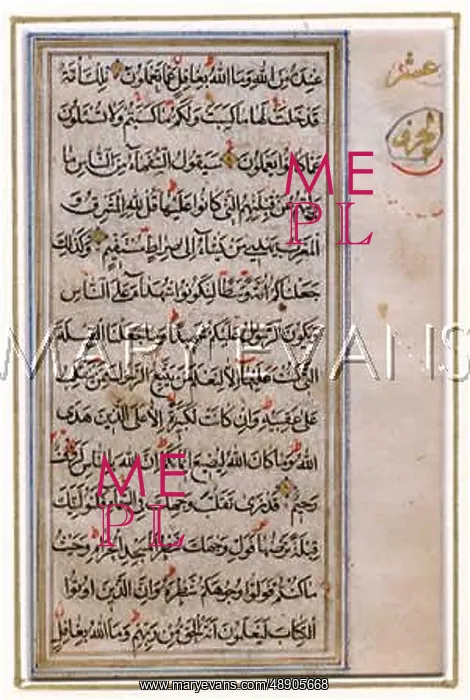 عنده من الله وما الله بغافل عما تعملون تلك امة
قد خلت لها ما كسبت ولكم ما كسبتم ولا تسئلون
عما كانوا يعملون سيقول السفهاء من الناس ما
وليهم عن قبلتهم التي كانوا عليها قل لله المشرق و
المغرب يهدي من يشاء الى صراط مستقيم وكذلك
جعلناكم امة وسطا لتكونوا شهداء على الناس
ويكون الرسول عليكم شهيدا وما جعلنا القبلة
التي كنت عليها الا لنعلم من يتبع الرسول ممن ينقلب
على عقبيه وان كانت لكبيرة الا على الذين هدى
الله وما كان الله ليضيع ايمانكم ان الله بالناس لرؤف
رحيم قد نرى تقلب وجهك في السماء فلنولينك
قبلة ترضيها فول وجهك شطر المسجد الحرام وحيث
ما كنتم فولوا وجوهكم شطره وان الذين اوتوا
الكتاب ليعلمون انه الحق من ربهم وما الله بغافل
عشر
الجزء
ME
PL
MARY EVANS
ME
PL
www.maryevans.com/48905668